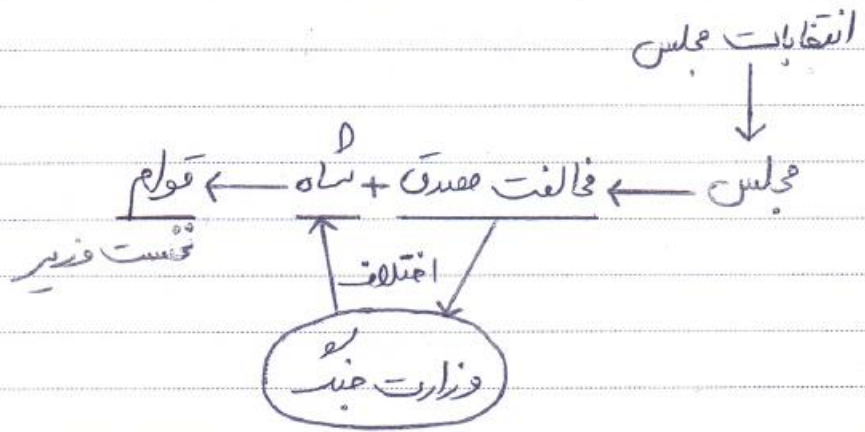 انتخابات مجلس
مجلس ← مخالفت مصدق + شاه ← قوام
نخست وزیر
اختلاف
وزارت جنگ